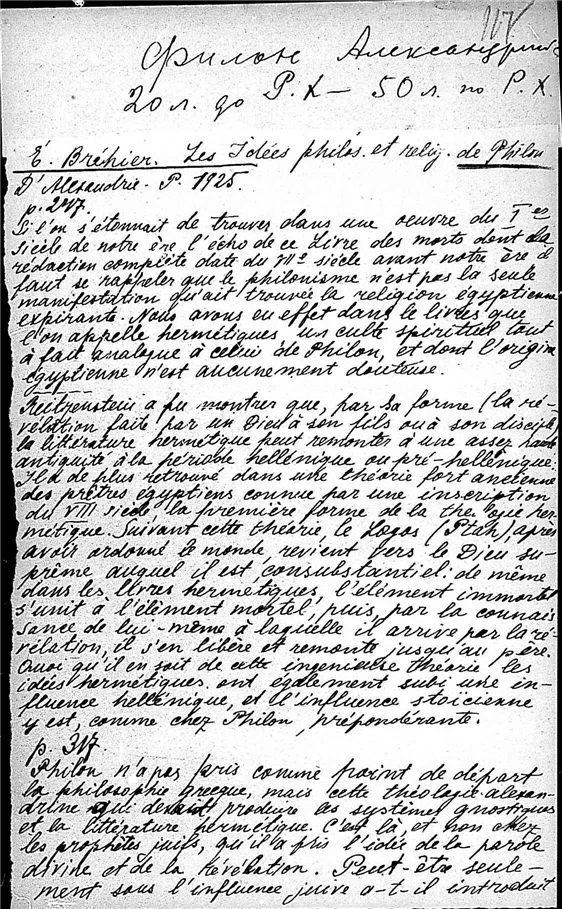 117
Филон Александрийс
20 л. до Р.Х – 50 л. по Р.Х.
É. Bréhier. Les Idées philos. et relig. de Philon
D'Alexandrie. P. 1925.
p. 247.
Si l'on s'étonnait de trouver dans une oeuvre du I er
siècle de notre ère l'écho de ce Livre des morts dont la
rédaction complète date du VIIe siècle avant notre ère il
faut se rappeler que le philonisme n'est pas la seule
manifestation qu'ait trouvée la religion égyptienne
expirante. Nous avons eu effet dans le livres que
l'on appelle hermétiques un culte spirituel tout
à fait analogue à celui de Philon, et dont l'origin
égyptienne n'est aucunement douteuse.
Reitzenstein a pu montrer que, par sa forme (la ré-
vélation faite par un Dieu à son fils ou à son disciple)
la littérature hermétique peut remonter à une assez haute
antiquité à la période hellénique ou pré-hellénique.
Il a de plus retrouvé dans une théorie fort ancienne
des prêtres égyptiens connue par une inscription
du VIII siècle la première forme de la her-
métique. Suivant cette théorie, le Logos (Ptah), après
avoir ordonné le monde, revient vers le Dieu su-
prême auquel il est consubstantiel: de même
dans les livres hermétiques, l'élément immortel
s'unit à l'élément mortel, puis, par la connais
sance de lui-même à laquelle il arrive par la ré-
vélation, il s'en libère et remonte jusqu'au père.
Quoi qu'il en soit de cette ingénieuse théorie les
idées hermétiques ont également subi une in-
fluence hellénique, et l'influence stoïcienne
y est, comme chez Philon, prépondérante.
p. 317.
Philon n'a pas pris comme point de départ
la philosophie grecque, mais cette théologie alexan-
drine qui devait produire les systèmes gnostiques
et la littérature hermétique. C'est là, et non chez
les prophètes juifs, qu'il a pris l'idée de la parole
divine et de la Révélation. Peut-être seule-
ment sous l'influence juive a-t-il introduit